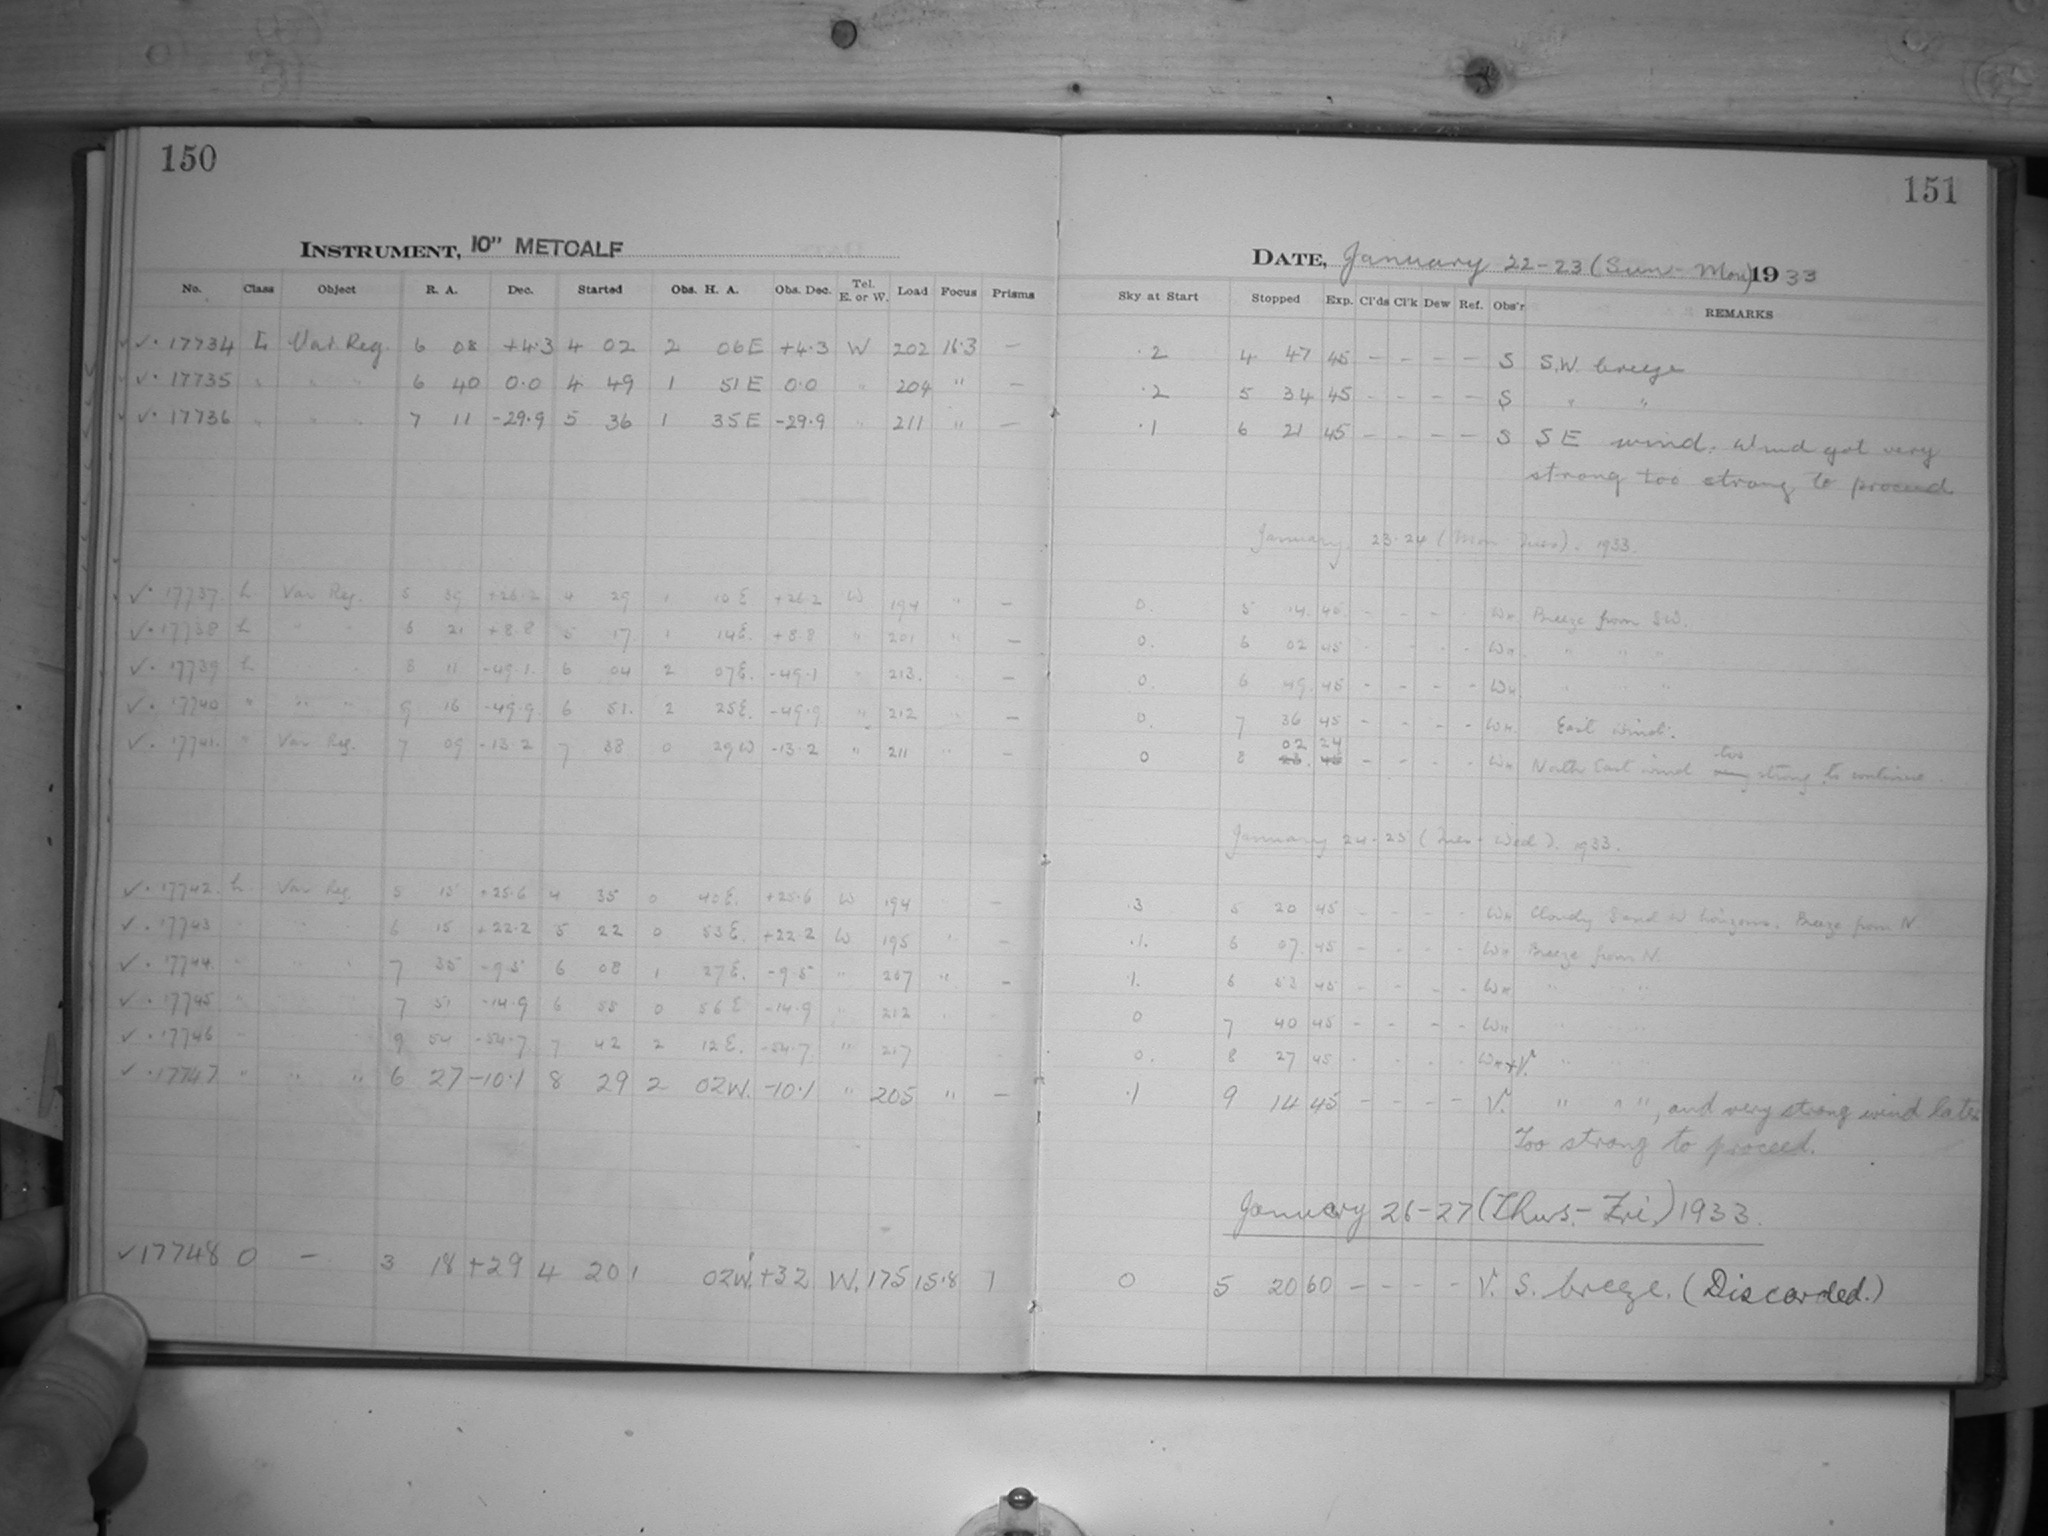 150
INSTRUMENT, 10" METCALF
No. Class Object R. A. Dec. Started Obs. H. A. Obs. Dec. Tel. E. or W. Load Focus Prisms
✓· 17734 L Var Reg. 6 08 +4·3 4 02 2 06E +4·3 W 202 16·3 —
✓· 17735 " " " 6 40 0·0 4 49 1 51E 0·0 " 204 " —
✓· 17736 " " " 7 11 -29·9 5 36 1 35E -29·9 " 211 " —
✓· 17737 L Var Reg. 5 39 +26·2 4 29 1 10E +26·2 W 194 " —
✓· 17738 L " " 6 21 +8·8 5 17 1 14E. +8·8 " 201 " —
✓· 17739 L " " 8 11 -49·1 6 04 2 07E. -49·1 " 213. " —
✓· 17740 " " " 9 16 -49·9 6 51. 2 25E. -49·9 " 212 " —
✓· 17741. " Var Reg. 7 09 -13·2 7 38 0 29W -13·2 " 211 " —
✓· 17742. L Var Reg. 5 15 +25·6 4 35 0 40E. +25·6 W 194 —
✓· 17743 " " 6 15 +22·2 5 22 0 53E. +22·2 W 195 " —
✓· 17744. " " 7 35 -9·5 6 08 1 27E. -9·5 " 207 " —
✓· 17745 " " 7 51 -14·9 6 55 0 56E -14·9 " 212 "
✓· 17746 " " 9 54 -54·7 7 42 2 12E. -54·7 " 217
✓·17747 " " " 6 27 -10·1 8 29 2 02W. -10·1 " 205 " —
✓17748 O — 3 18 +29 4 20 1 02W. +32 W. 175 15·8 1
151
DATE, January 22-23 (Sun-Mon) 1933
Sky at Start Stopped Exp. Cl'ds Cl'k Dew Ref. Obs'r REMARKS
·2 4 47 45 - - - - S S.W. breeze
·2 5 34 45 - - - - S " "
·1 6 21 45 - - - - S SE wind. Wind got very
strong too strong to proceed
January 23-24 (Mon Tues). 1933.
0. 5 14. 45 - - - - WH Breeze from SW.
0. 6 02 45 - - - - WH " " "
0. 6 49. 45 - - - - WH " " "
0. 7 36 45 - - - - WH. East wind.
02 24 too
0 8 - - - - WH North East wind strong to continue.
January 24-25 (Tues-Wed). 1933.
·3 5 20 45 - - - - WH Cloudy S and W horizons. Breeze from N.
·1. 6 07. 45 - - - - WH Breeze from N.
·1. 6 53 45 - - - - WH " "
0 7 40 45 - - - - WH " "
0. 8 27 45 - - - WH+V. "
·1 9 14 45 - - - - V. " " ", and very strong wind later
Too strong to proceed.
January 26-27 (Thurs.-Fri.) 1933.
0 5 20 60 - - - - V. S. breeze. (Discarded.)